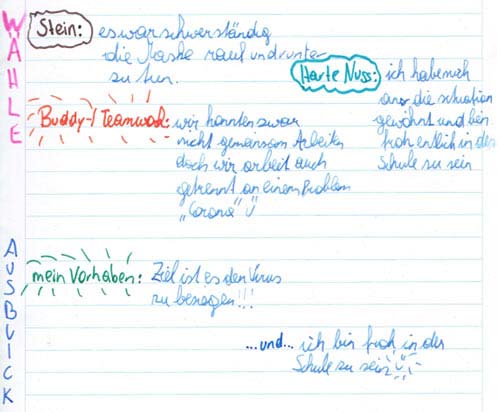 WÄHLE
Stein: es war schwer ständig
die Maske rauf und runter
zu tun.
Harte Nuss: ich habe mich
an die situation
gewöhnt und bin
froh entlich in der
Schule zu sein
Buddy-/Teamwork: wir konnten zwar
nicht gemeinsam Arbeiten
doch wir arbeit auch
getrennt an einem Problem
„Corona"
AUSBLICK
mein Vorhaben: Ziel ist es den Virus
zu besiegen!!!
...und... ich bin froh in der
Schule zu sein